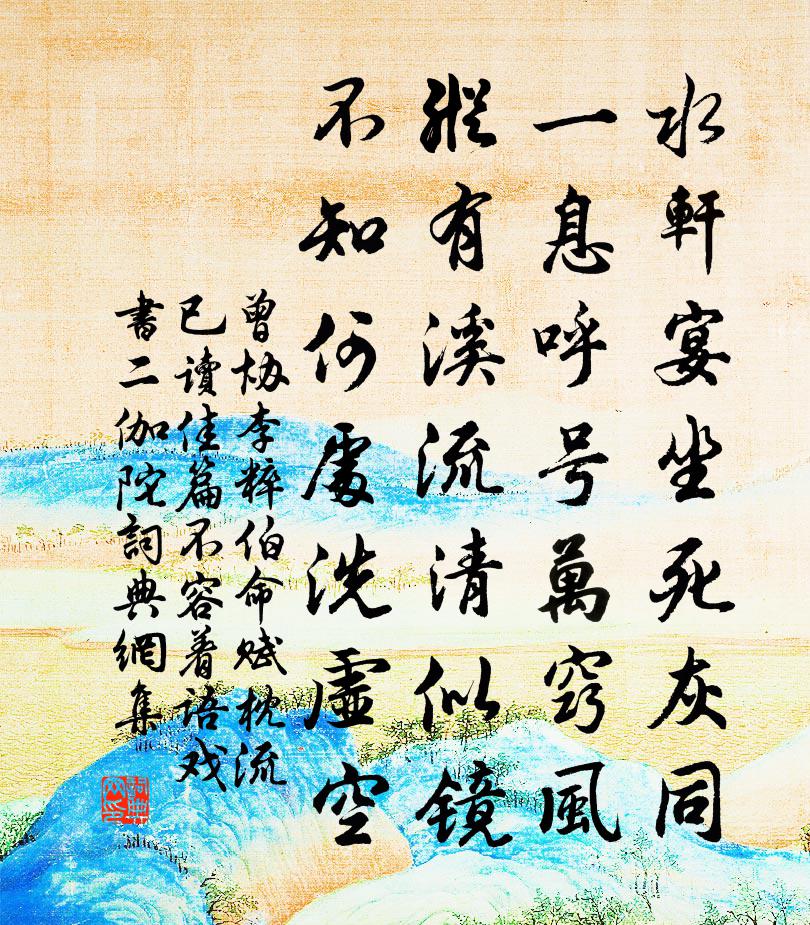 水軒宴坐死灰同
一息呼号萬竅風
縱有溪流清似鏡
不知何處洗虛空
曾協李粹伯命賦枕流
已讀佳篇不容着語戏
書二伽陀詞典網集